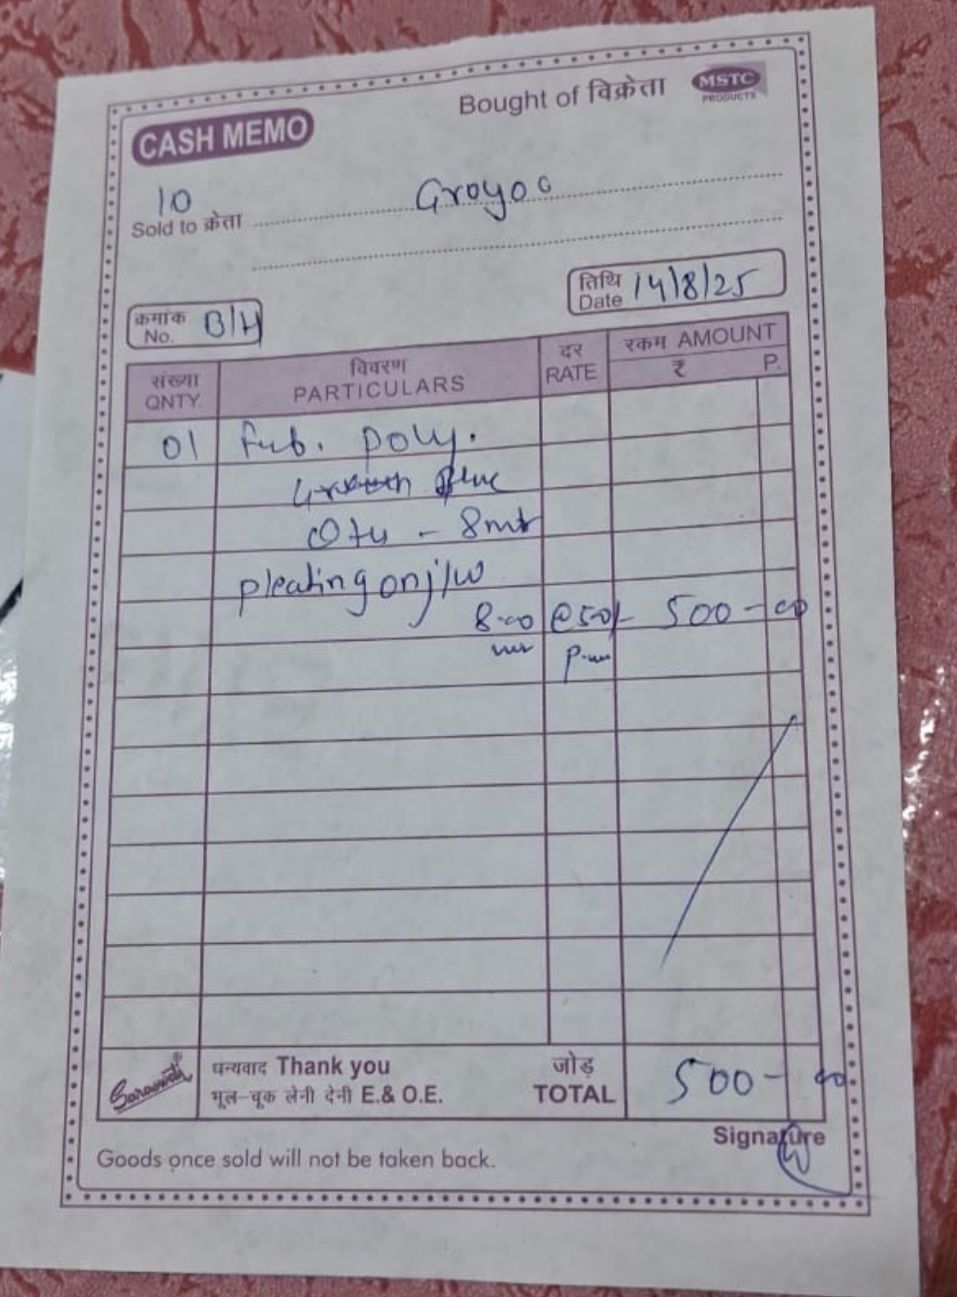 Bought of विक्रेता
MSTC
PRODUCTS
CASH MEMO
10
Sold to क्रेता Groyoo
तिथि
Date 14/8/25
क्रमांक
No. B/H
संख्या
QNTY.
विवरण
PARTICULARS
दर
RATE
रकम AMOUNT
₹ P.
01 Fub. Poly.
Blue
Qty - 8mt
pleating on j/w
8-00 @50/- 500-00
TOTAL जोड़ 500-00
Saraswati
धन्यवाद Thank you
भूल-चूक लेनी देनी E.& O.E.
Signature
Goods once sold will not be taken back.